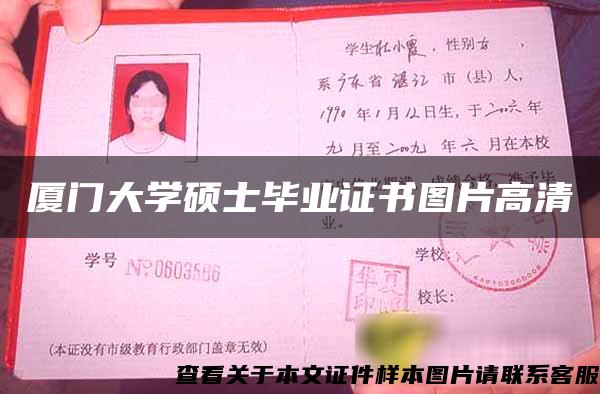 学生杜小霞，性别女，
系广东省湛江市（县）人，
1990年1月12日生，于二〇〇六年
九月至二〇〇九年六月在本校
厦门大学硕士毕业证书图片高清
业。
学校：
学号 №0603586
校长：
（本证没有市级教育行政部门盖章无效）
查看关于本文证件样本图片请联系客服